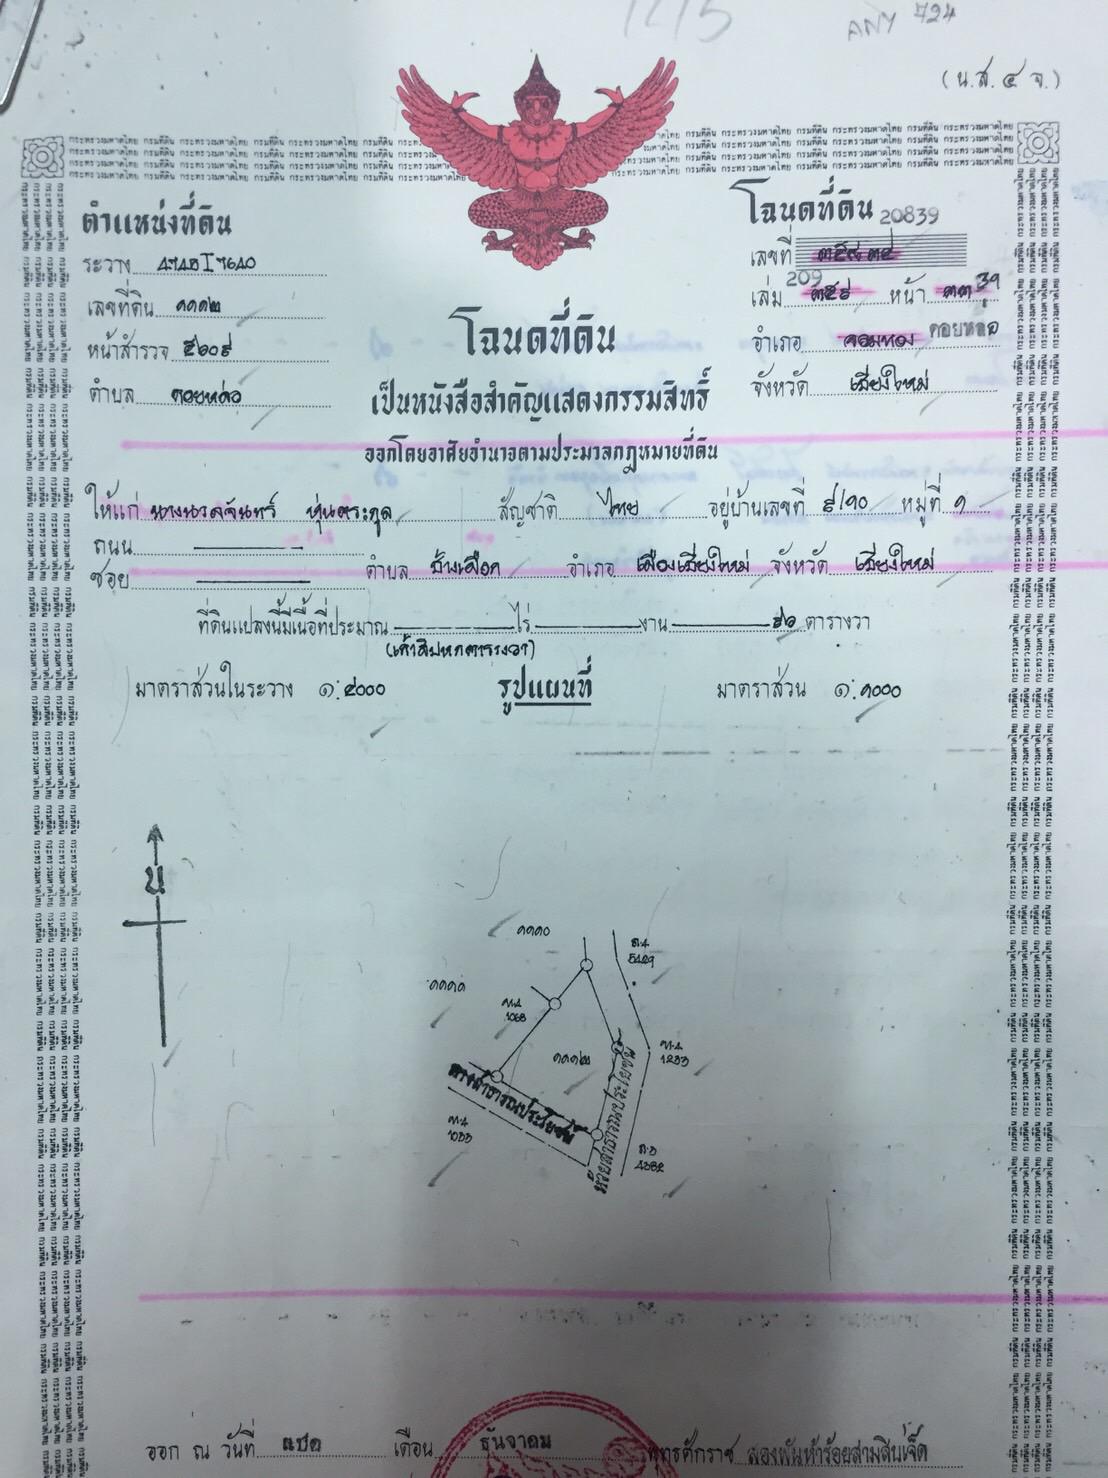 ANY 724
(น.ส. ๔ จ.)
ตำแหน่งที่ดิน
ระวาง 4745 I 7640
เลขที่ดิน ๑๑๑๒
หน้าสำรวจ ๕๖๐๙
ตำบล ดอยหล่อ
โฉนดที่ดิน
20839
เลขที่
209
เล่ม ๓๕๙ หน้า 39
อำเภอ จอมทอง ดอยหล่อ
จังหวัด เชียงใหม่
โฉนดที่ดิน
เป็นหนังสือสำคัญแสดงกรรมสิทธิ์
ออกโดยอาศัยอำนาจตามประมวลกฎหมายที่ดิน
ให้แก่ นางนวลจันทร์ หุ่นตระกูล สัญชาติ ไทย อยู่บ้านเลขที่ ๙/๑๐ หมู่ที่ ๑
ถนน
ซอย ตำบล ช้างเผือก อำเภอ เมืองเชียงใหม่ จังหวัด เชียงใหม่
ที่ดินแปลงนี้มีเนื้อที่ประมาณ ไร่ งาน ๙๖ ตารางวา
(เก้าสิบหกตารางวา)
มาตราส่วนในระวาง ๑:๔๐๐๐ รูปแผนที่ มาตราส่วน ๑:๑๐๐๐
น
๑๑๑๐
5429
๑๑๑๑
1068
๑๑๑๒
1233
ทางสาธารณประโยชน์
ห้วยสาธารณประโยชน์
1033
4382
ออก ณ วันที่ แปด เดือน ธันวาคม พุทธศักราช สองพันห้าร้อยสามสิบเจ็ด